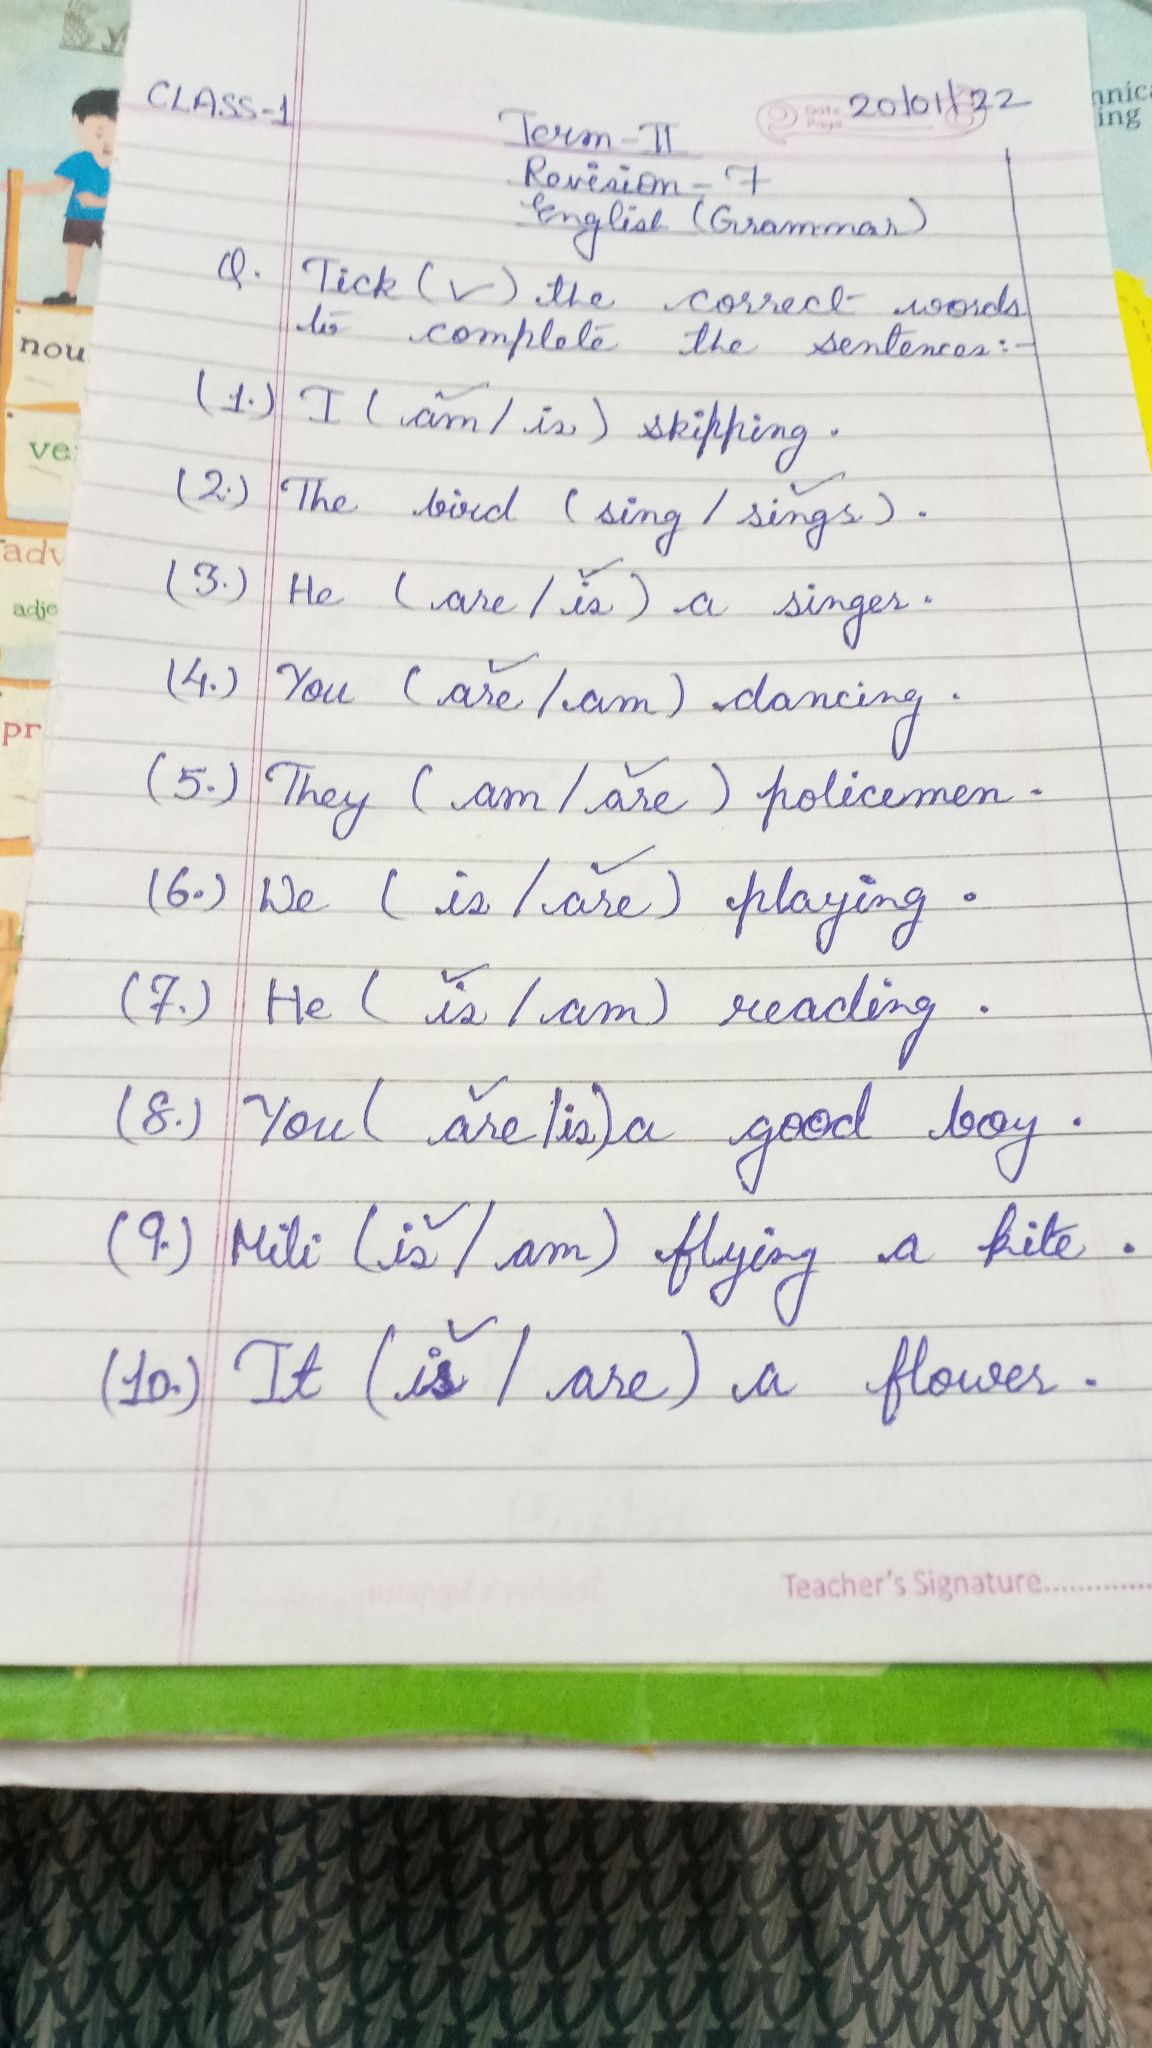 CLASS-1
Date
Page
20/01/22
Term-II
Revision-7
English (Grammar)
Q. Tick (✓) the correct words
to complete the sentences:-
(1.) I (am✓/is) skipping.
(2.) The bird (sing/sings✓).
(3.) He (are/is✓) a singer.
(4.) You (are✓/am) dancing.
(5.) They (am/are✓) policemen.
(6.) We (is/are✓) playing.
(7.) He (is✓/am) reading.
(8.) You (are✓/is) a good boy.
(9.) Mili (is✓/am) flying a kite.
(10.) It (is✓/are) a flower.
Teacher's Signature..............
nou
ve
adv
adje
pr
ing